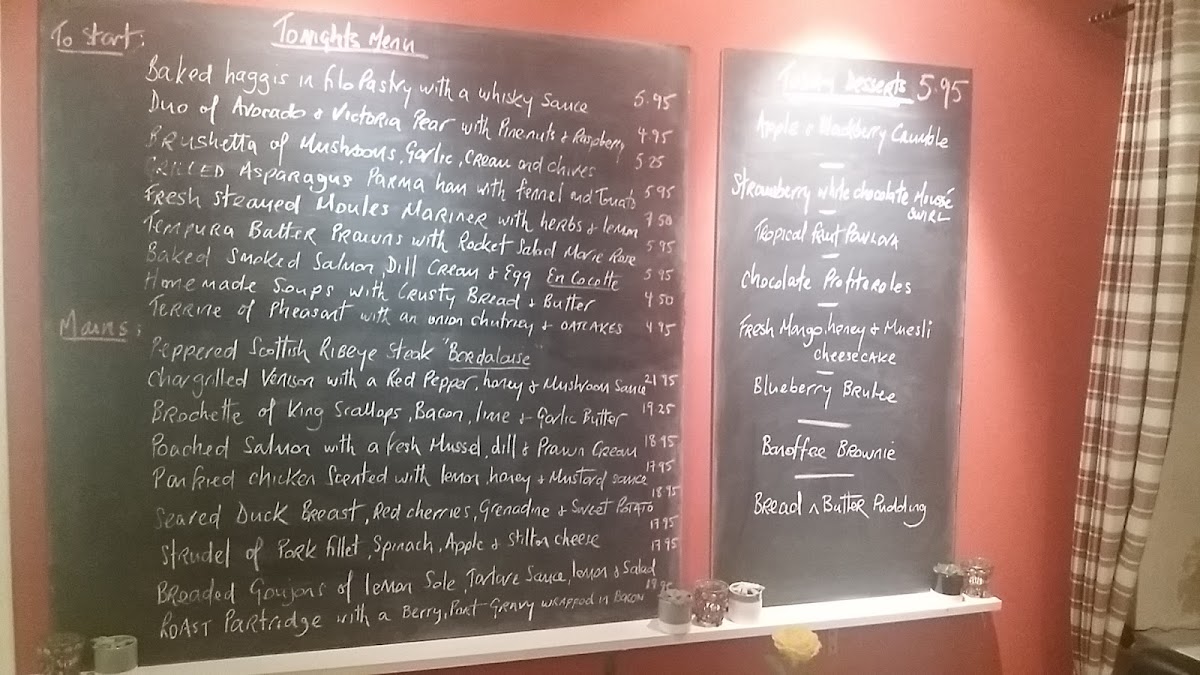 To Start:
Tonights Menu
Baked haggis in filo Pastry with a whisky Sauce 5.95
Duo of Avocado & Victoria Pear with Pinenuts & Raspberry 4.95
Brushetta of Mushrooms, Garlic, Cream and Chives 5.25
GRILLED Asparagus Parma ham with fennel and Tomato 5.95
Fresh Steamed Moules Mariner with herbs & lemon 7.50
Tempura Batter Prawns with Rocket Salad Marie Rose 5.95
Baked Smoked Salmon, Dill Cream & Egg En Cocotte 5.95
Homemade Soups with Crusty Bread & Butter 4.50
Terrine of Pheasant with an onion chutney & OATCAKES 4.95
Mains:
Peppered Scottish Ribeye Steak "Bordalaise"
Chargrilled Venison with a Red Pepper, honey & Mushroom Sauce 21.95
Brochette of King Scallops, Bacon, lime & Garlic Butter 19.25
Poached Salmon with a fresh Mussel, dill & Prawn Cream 18.95
Panfried chicken Scented with lemon, honey & Mustard sauce 17.95
Seared Duck Breast, Red cherries, Grenadine & Sweet Potato 18.95
Strudel of Pork fillet, Spinach, Apple & Stilton cheese 17.95
17.95
Breaded Goujons of lemon Sole, Tartare Sauce, lemon & Salad
Roast Partridge with a Berry, Port Gravy wrapped in Bacon
Desserts 5.95
Apple & Blackberry Crumble
Strawberry white chocolate Mousse
SWIRL
Tropical Fruit Pavlova
Chocolate Profiteroles
Fresh Mango, honey & Muesli
cheesecake
Blueberry Brulee
Banoffee Brownie
Bread ^ Butter Pudding